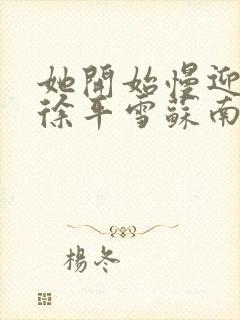 她開始慢迎
徐平雪蘇南
楊冬